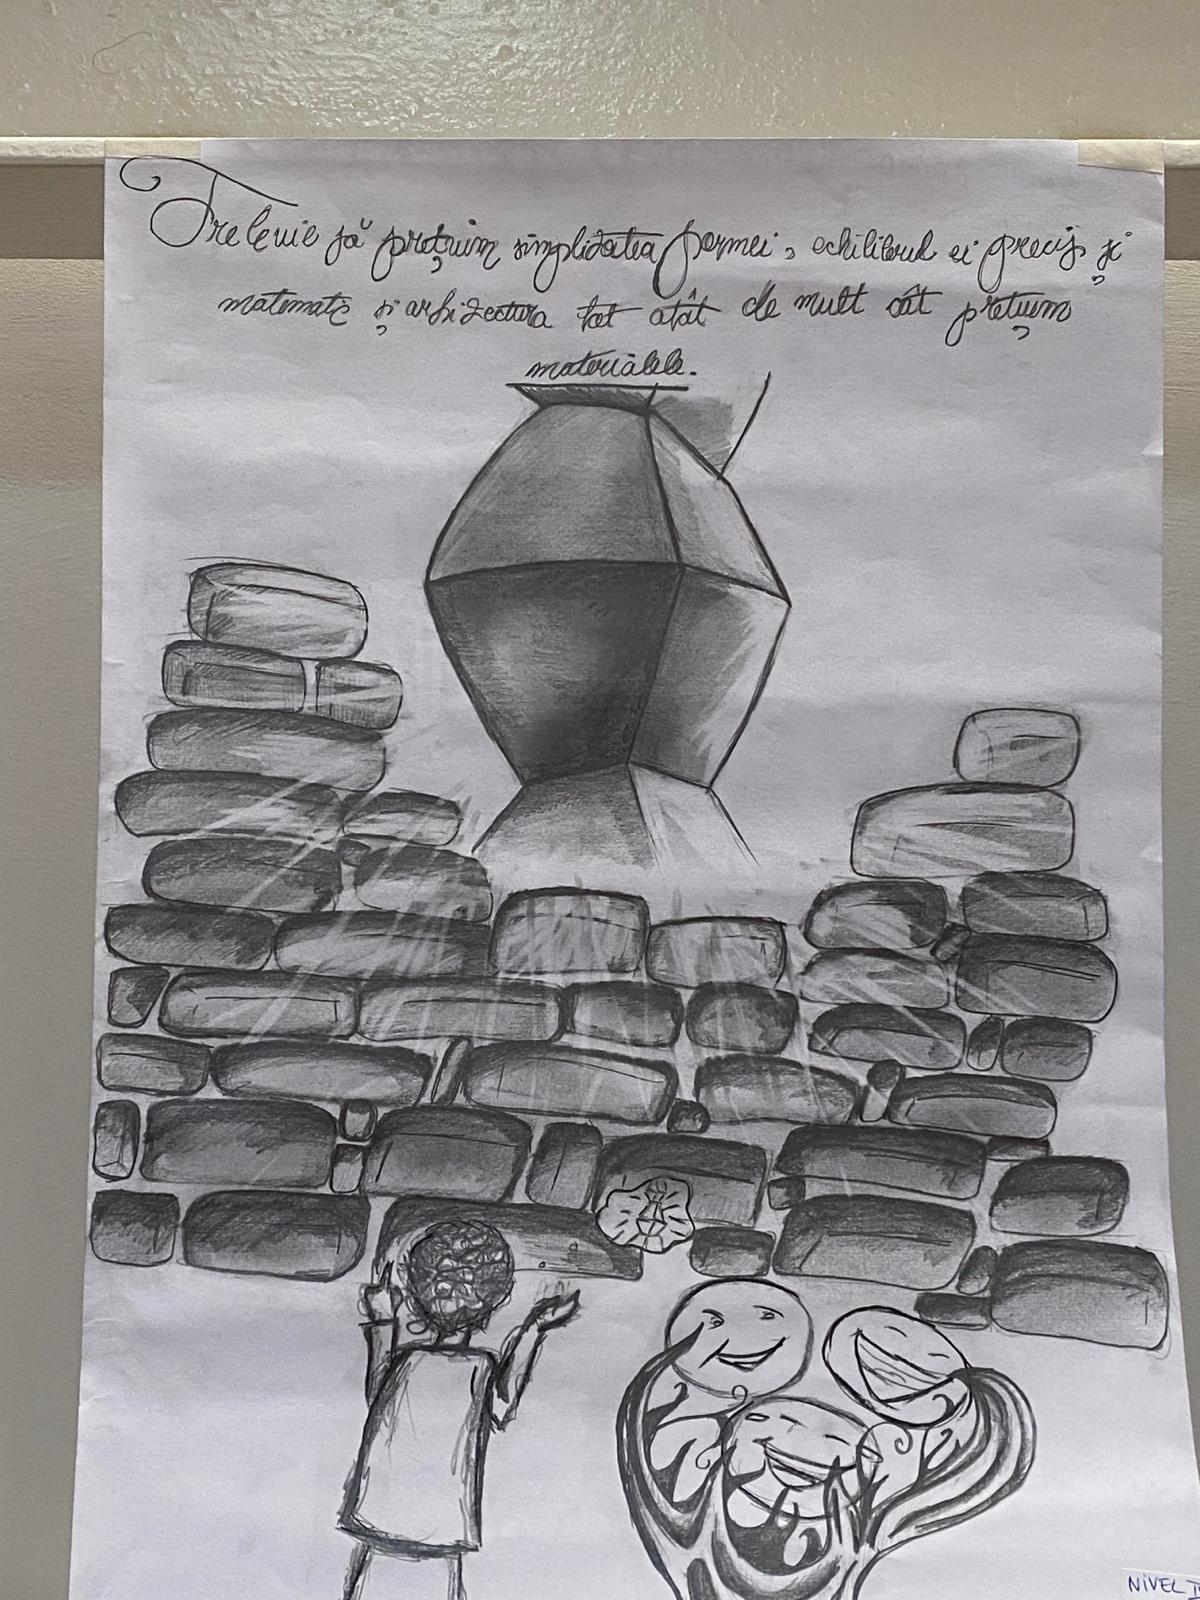 Trebuie să prețuim simplidatea formei, echilibrul ei precis și
matematic și arhidectura tot atât de mult cât prețuim
materialele.
NIVEL I